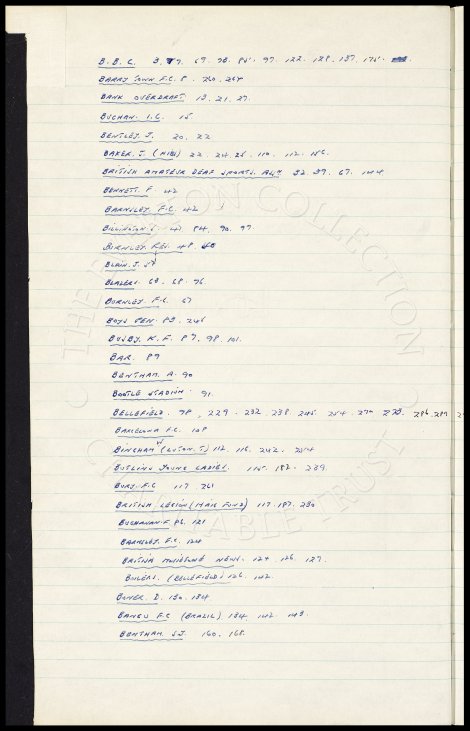 B.B.C. 3. 69. 78. 85. 97. 122. 128. 157. 175.
BARRY TOWN. F.C. 8. 260. 264
BANK OVERDRAFT. 13. 21. 27.
BUCHAN. I.C. 15.
BENTLEY. J. 20. 22
BAKER. J. (HIBS) 22. 24. 25. 110. 112. 156.
BRITISH AMATEUR DEAF SPORTS. ASSN 32. 39. 67. 144
BENNETT. F. 42
BARNSLEY. F.C. 42
BILLINGTON. 43. 84. 90. 97.
BURNLEY. RES. 48.
BLAIN. J. 58
BLAZERS. 63. 68. 76.
BURNLEY. F.C. 67
BOYS PEN. 83. 246
BUSBY. K. F. 87. 98. 101.
BAR. 87
BENTHAM. A. 90
BOOTLE STADIUM. 91.
BELLEFIELD. 98. 229. 232. 238. 245. 254. 270. 273. 286. 287
BARCELONA F.C. 108
BINGHAM W (LUTON. T) 112. 116. 242. 254
BUTLINS YOUNG LADIES. 115. 182. 239.
BURY. F.C. 117. 261
BRITISH LEGION (HAIG FUND) 117. 187. 230
BUCHANAN. F. PG. 121
BARNSLEY. F.C. 124
BRITISH MOVIETONE NEWS. 124. 126. 127.
BOILERS. (BELLEFIELD) 126. 142.
BONER. D. 130. 134
BANGU F.C (BRAZIL) 134. 142. 143.
BENTHAM. S.J. 160. 168.
THE EVERTON COLLECTION
CHARITABLE TRUST